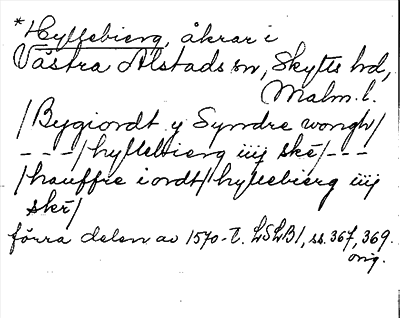 *Hyllebierg, åkrar i
Västra Alstads sn, Skytts hd,
Malm. l.
/Bygiordt y Syndre wongh/
---/hyllebierg iiij ske/---
/hauffre iordt/hyllebierg iiij
skē/
förra delen av 1570-t. LSLB1, ss. 367, 369.
orig.